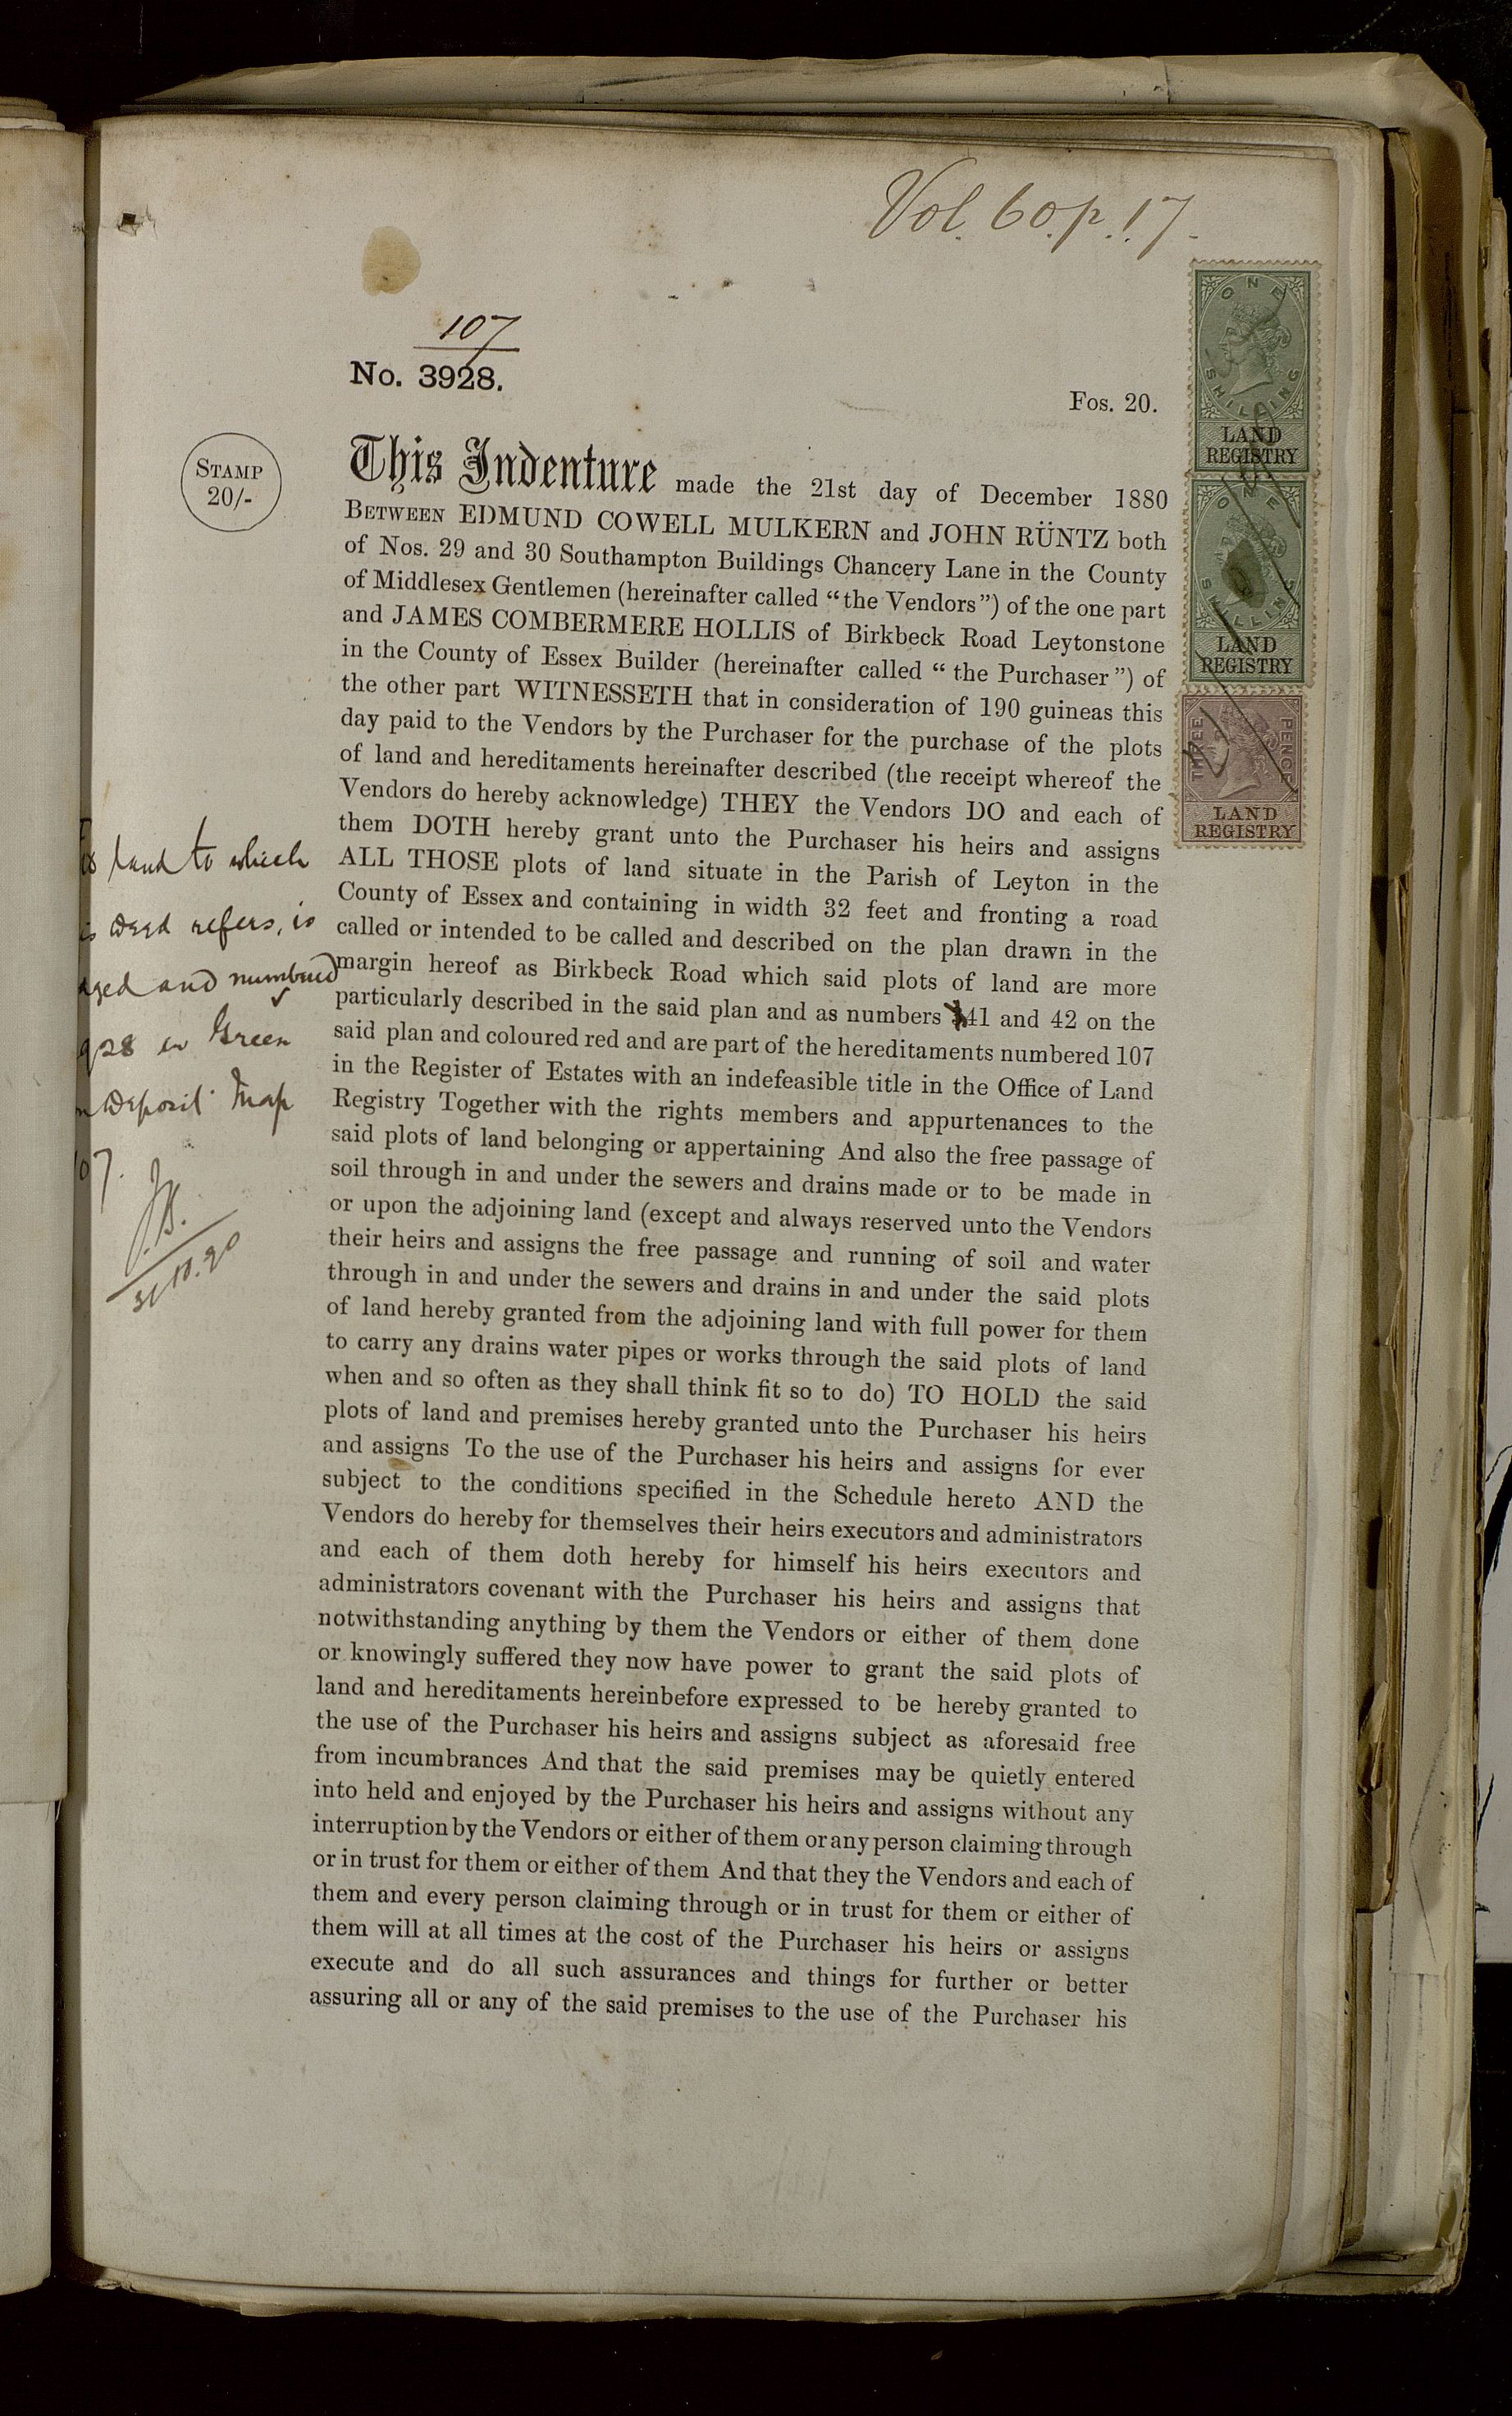 Vol. 60. p. 17.
107
No. 3928.
Fos. 20.
STAMP
20/-
ONE
SHILLING
LAND
REGISTRY
ONE
SHILLING
LAND
REGISTRY
THREE
PENCE
LAND
REGISTRY
This Indenture made the 21st day of December 1880
BETWEEN EDMUND COWELL MULKERN and JOHN RÜNTZ both
of Nos. 29 and 30 Southampton Buildings Chancery Lane in the County
of Middlesex Gentlemen (hereinafter called “the Vendors”) of the one part
and JAMES COMBERMERE HOLLIS of Birkbeck Road Leytonstone
in the County of Essex Builder (hereinafter called “the Purchaser”) of
the other part WITNESSETH that in consideration of 190 guineas this
day paid to the Vendors by the Purchaser for the purchase of the plots
of land and hereditaments hereinafter described (the receipt whereof the
Vendors do hereby acknowledge) THEY the Vendors DO and each of
them DOTH hereby grant unto the Purchaser his heirs and assigns
ALL THOSE plots of land situate in the Parish of Leyton in the
County of Essex and containing in width 32 feet and fronting a road
called or intended to be called and described on the plan drawn in the
margin hereof as Birkbeck Road which said plots of land are more
particularly described in the said plan and as numbers 41 and 42 on the
said plan and coloured red and are part of the hereditaments numbered 107
in the Register of Estates with an indefeasible title in the Office of Land
Registry Together with the rights members and appurtenances to the
said plots of land belonging or appertaining And also the free passage of
soil through in and under the sewers and drains made or to be made in
or upon the adjoining land (except and always reserved unto the Vendors
their heirs and assigns the free passage and running of soil and water
through in and under the sewers and drains in and under the said plots
of land hereby granted from the adjoining land with full power for them
to carry any drains water pipes or works through the said plots of land
when and so often as they shall think fit so to do) TO HOLD the said
plots of land and premises hereby granted unto the Purchaser his heirs
and assigns To the use of the Purchaser his heirs and assigns for ever
subject to the conditions specified in the Schedule hereto AND the
Vendors do hereby for themselves their heirs executors and administrators
and each of them doth hereby for himself his heirs executors and
administrators covenant with the Purchaser his heirs and assigns that
notwithstanding anything by them the Vendors or either of them done
or knowingly suffered they now have power to grant the said plots of
land and hereditaments hereinbefore expressed to be hereby granted to
the use of the Purchaser his heirs and assigns subject as aforesaid free
from incumbrances And that the said premises may be quietly entered
into held and enjoyed by the Purchaser his heirs and assigns without any
interruption by the Vendors or either of them or any person claiming through
or in trust for them or either of them And that they the Vendors and each of
them and every person claiming through or in trust for them or either of
them will at all times at the cost of the Purchaser his heirs or assigns
execute and do all such assurances and things for further or better
assuring all or any of the said premises to the use of the Purchaser his
land to which
deed refers, is
and numbered
928 in Green
deposit Map
07.
J.B.
31.10.90